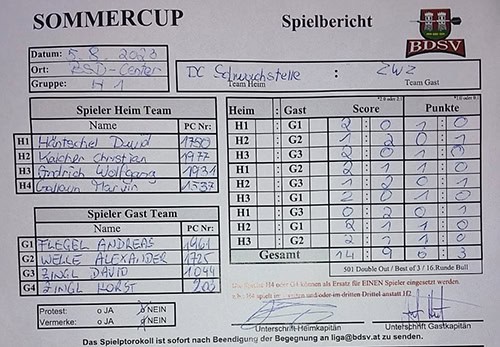 SOMMERCUP
Spielbericht
BDSV
Datum: 5.8.2023
Ort: BSD-Center
Gruppe: H 1
DC Schwachstelle : ZWZ
Team Heim Team Gast
Spieler Heim Team
Name PC Nr:
H1 Häntschel David 1750
H2 Kaichen Christian 1977
H3 Andrich Wolfgang 1931
H4 Marvin 1337
Spieler Gast Team
Name PC Nr:
G1 FLEGEL ANDREAS 1961
G2 WELLE ALEXANDER 1725
G3 ZINGL DAVID 1044
G4 ZINGL HORST 203
Heim : Gast Score Punkte
H1 : G1 2 : 0 1 : 0
H2 : G2 1 : 2 0 : 1
H3 : G3 2 : 0 1 : 0
H1 : G2 2 : 1 1 : 0
H2 : G3 1 : 2 0 : 1
H3 : G1 2 : 0 1 : 0
H1 : G3 0 : 2 0 : 1
H2 : G1 2 : 1 1 : 0
H3 : G2 2 : 1 1 : 0
Gesamt 14 : 9 6 : 3
501 Double Out / Best of 3 / 16.Runde Bull
Die Spieler H4 oder G4 können als Ersatz für EINEN Spieler eingesetzt werden.
z.b.: H4 spielt im ersten und/oder im dritten Drittel anstatt H2
Protest: o JA o NEIN
Vermerke: o JA o NEIN
Unterschrift-Heimkapitän
Unterschrift Gastkapitän
Das Spielprotokoll ist sofort nach Beendigung der Begegnung an liga@bdsv.at zu senden.